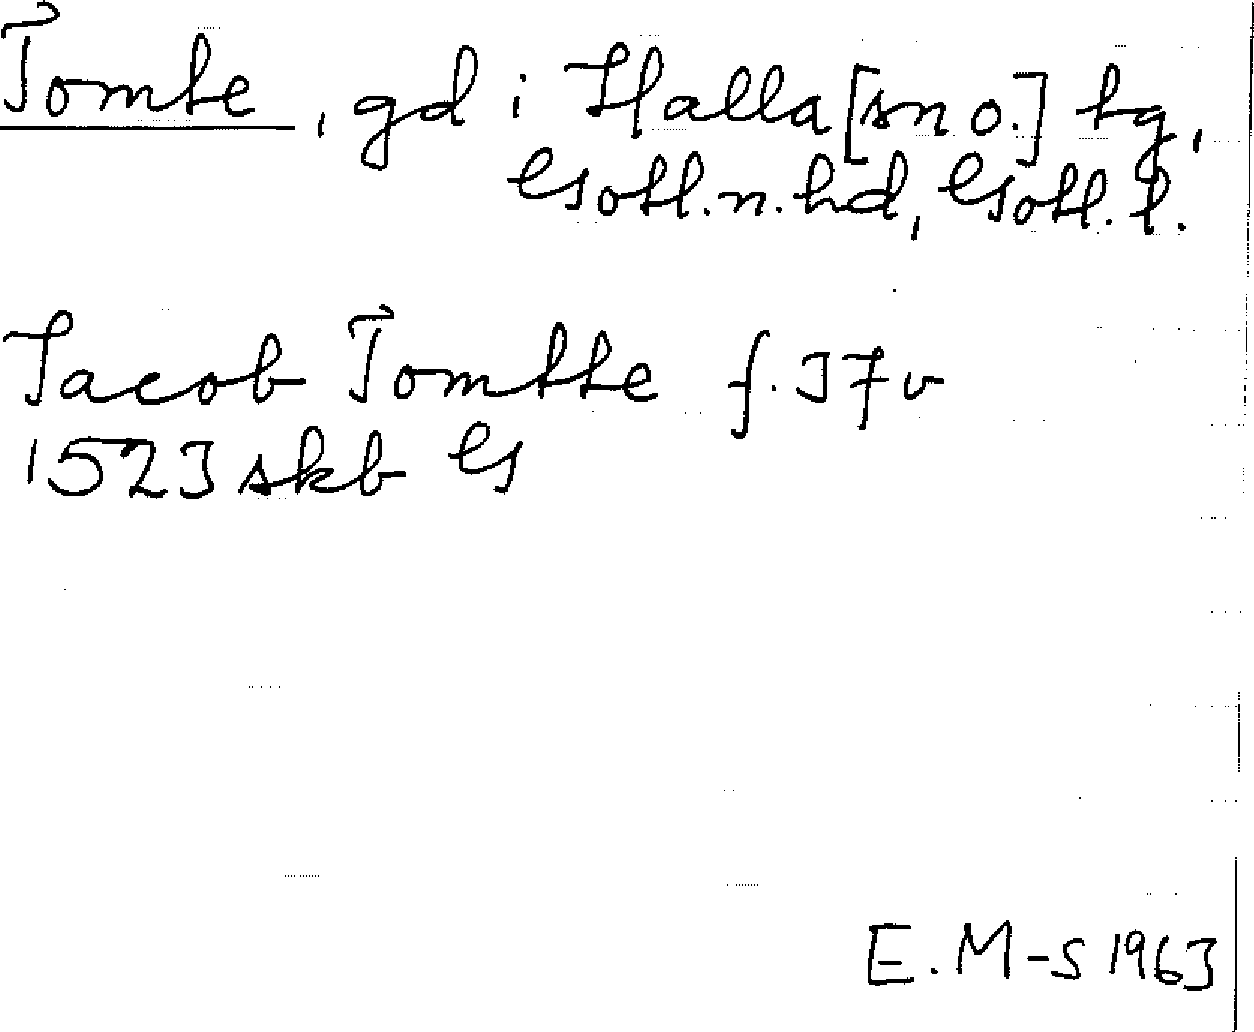 Tomte, gd i Halla [sn o.] tg,
Gotl. n. hd, Gotl. l.
Jacob Tomtte f. 37v
1523 skb G
E. M-S 1963